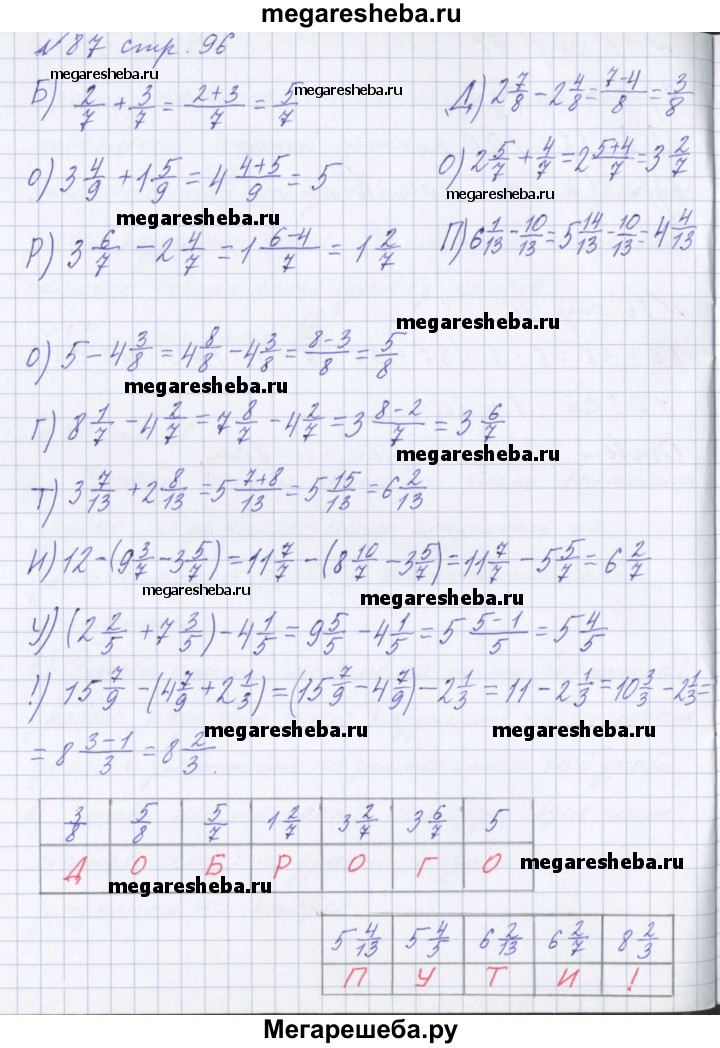 megaresheba.ru
№87 стр. 96
megaresheba.ru
Б) 2/7 + 3/7 = (2+3)/7 = 5/7
megaresheba.ru
Д) 2 7/8 - 2 4/8 = (7-4)/8 = 3/8
О) 3 4/9 + 1 5/9 = 4 (4+5)/9 = 5
О) 2 5/7 + 4/7 = 2 (5+4)/7 = 3 2/7
megaresheba.ru
megaresheba.ru
Р) 3 6/7 - 2 4/7 = 1 (6-4)/7 = 1 2/7
П) 6 1/13 - 10/13 = 5 14/13 - 10/13 = 4 4/13
megaresheba.ru
megaresheba.ru
О) 5 - 4 3/8 = 4 8/8 - 4 3/8 = (8-3)/8 = 5/8
megaresheba.ru
Г) 8 1/7 - 4 2/7 = 7 8/7 - 4 2/7 = 3 (8-2)/7 = 3 6/7
megaresheba.ru
Т) 3 7/13 + 2 8/13 = 5 (7+8)/13 = 5 15/13 = 6 2/13
И) 12 - (9 3/7 - 3 5/7) = 11 7/7 - (8 10/7 - 3 5/7) = 11 7/7 - 5 5/7 = 6 2/7
megaresheba.ru
megaresheba.ru
У) (2 2/5 + 7 3/5) - 4 1/5 = 9 5/5 - 4 1/5 = 5 (5-1)/5 = 5 4/5
!) 15 7/9 - (4 7/9 + 2 1/3) = (15 7/9 - 4 7/9) - 2 1/3 = 11 - 2 1/3 = 10 3/3 - 2 1/3 =
megaresheba.ru
megaresheba.ru
= 8 (3-1)/3 = 8 2/3.
3/8 5/8 5/7 1 2/7 3 2/7 3 6/7 5
Д О Б Р О Г О
megaresheba.ru
megaresheba.ru
5 4/13 5 4/5 6 2/13 6 2/7 8 2/3
П У Т И !
Мегарешеба.ру